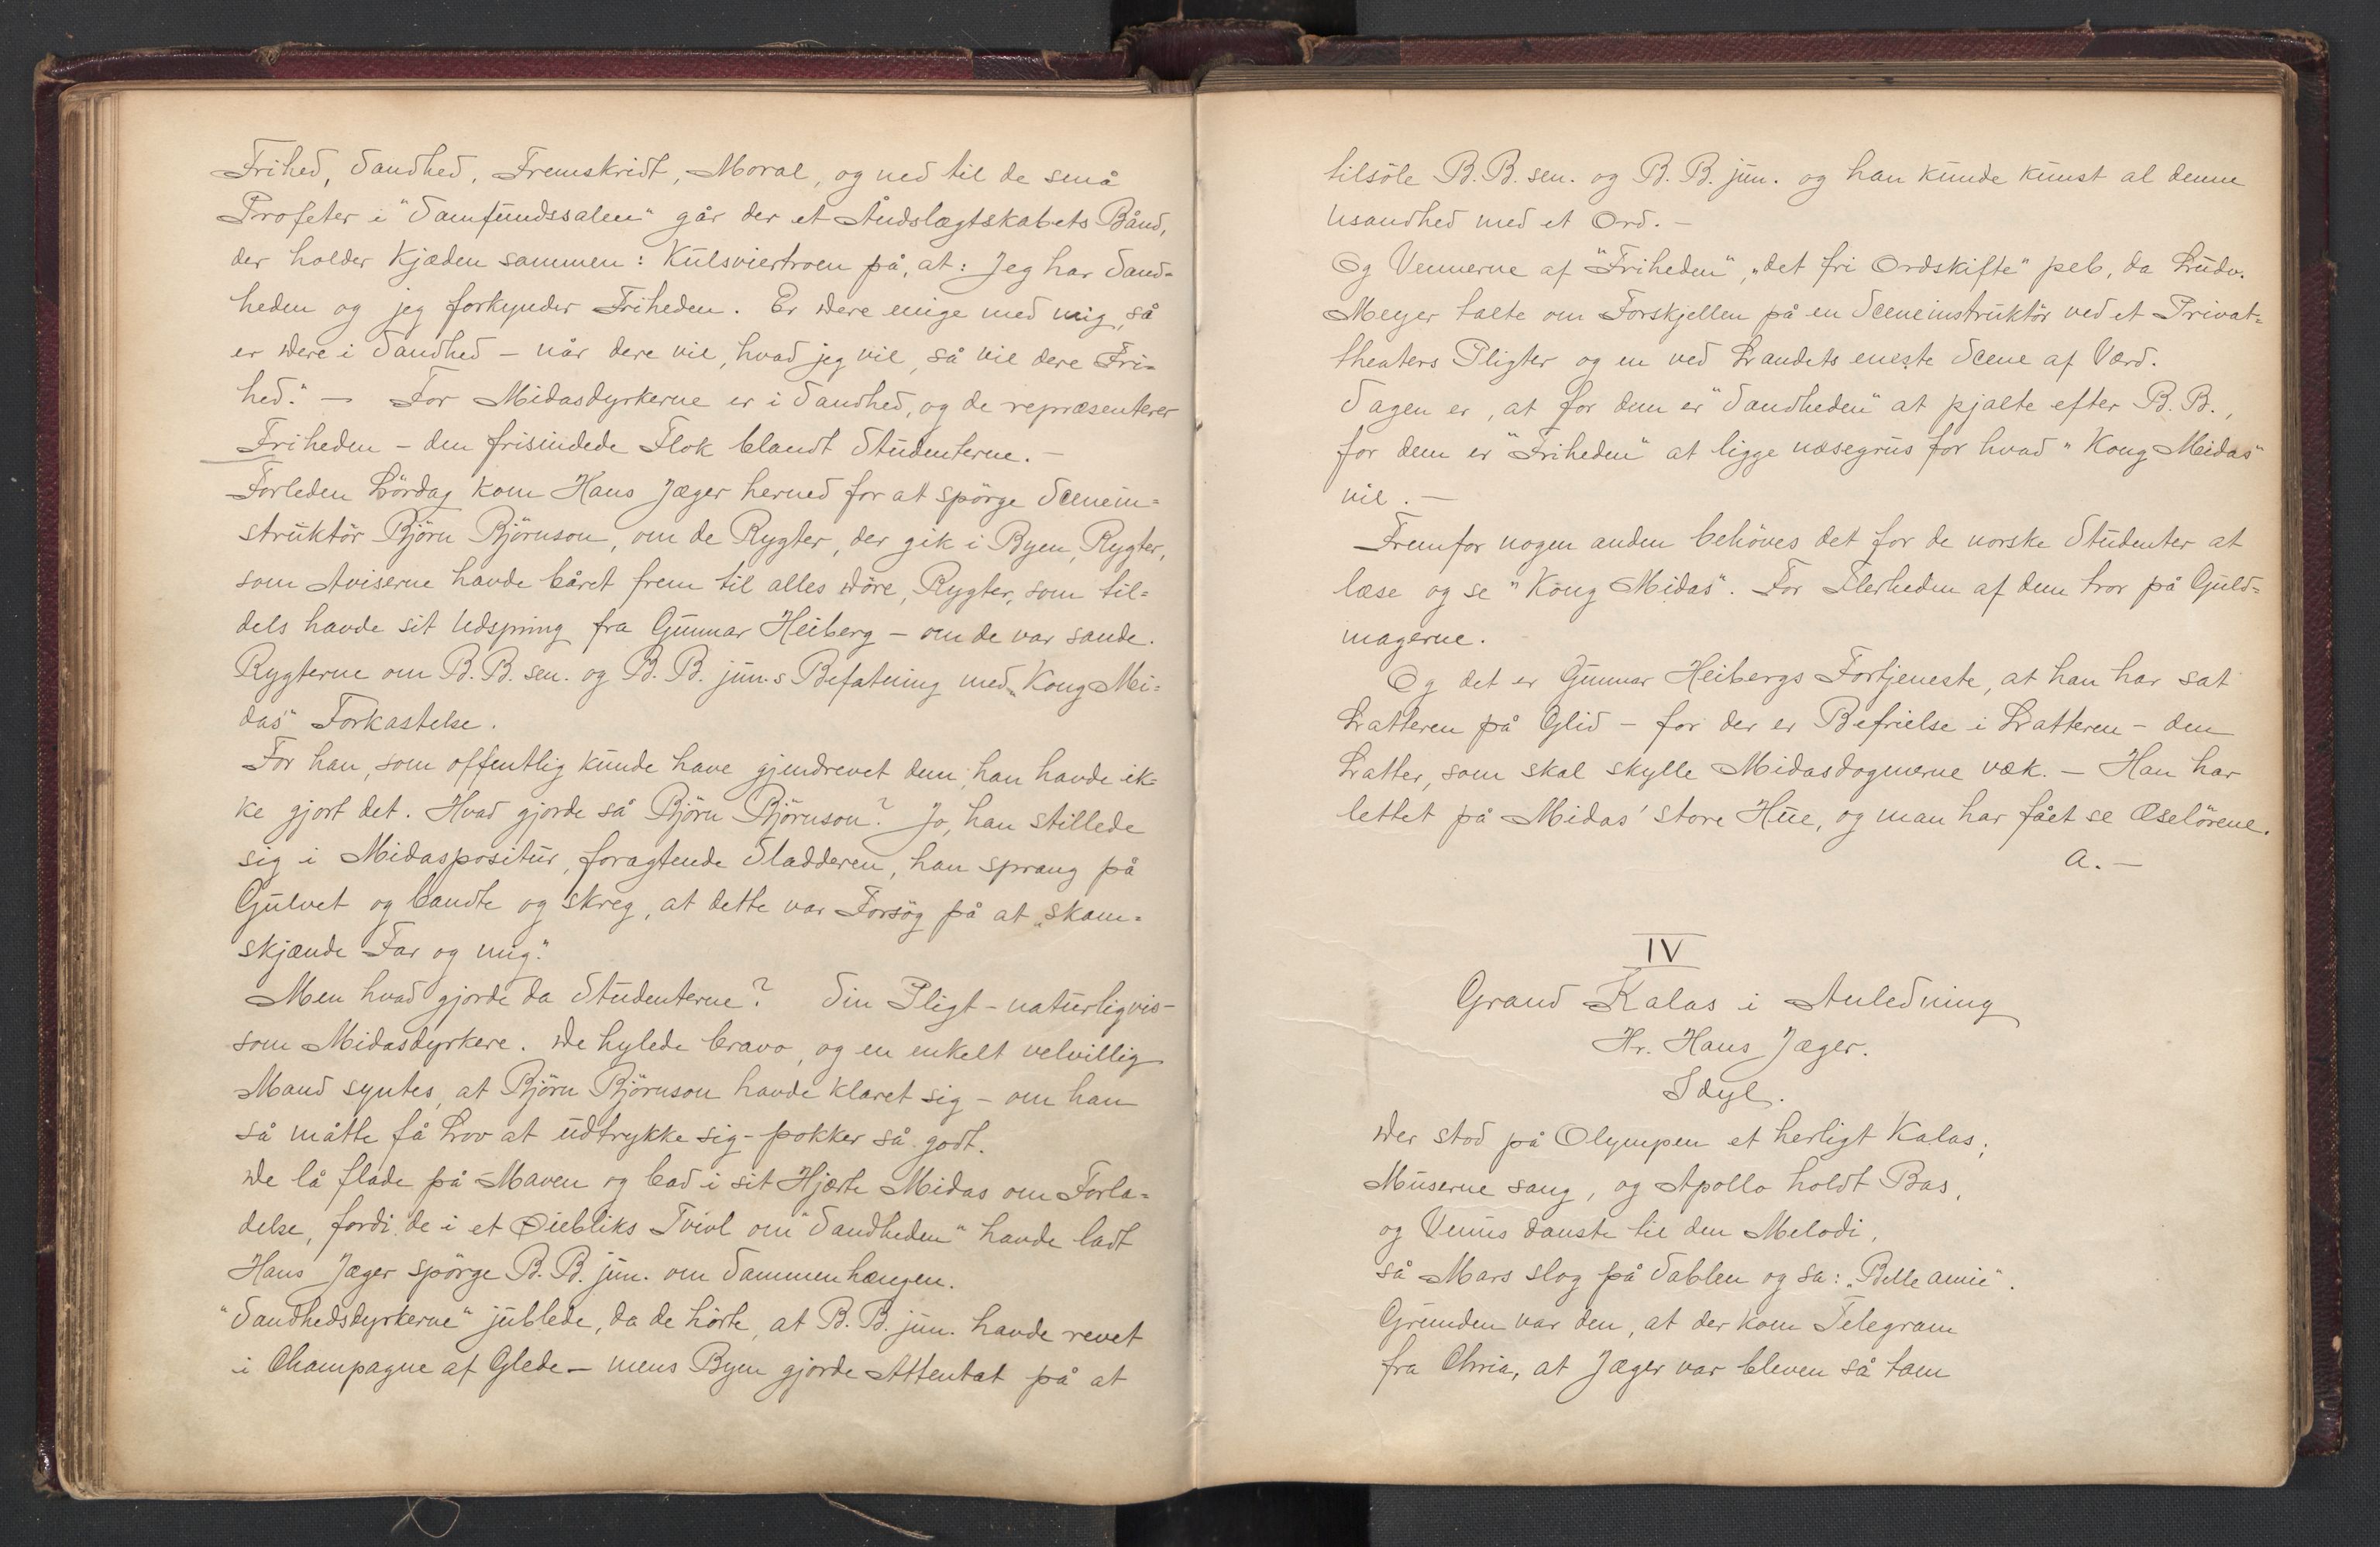 Frihed, Sandhed, Fremskridt, Moral, og ned til de små
Profeter i "Samfundssalen" går der et Åndslægtskabets Bånd,
der holder Kjæden sammen: Kulsviertroen på, at: Jeg har Sand=
heden og jeg forkynder Friheden. Er dere enige med mig, så
er dere i Sandhed – når dere vil, hvad jeg vil, så vil dere Fri=
hed." – For Midasdyrkerne er i Sandhed, og de repræsenterer
Friheden – den frisindede Flok blandt Studenterne. –
Forleden Lördag kom Hans Jæger herned for at spörge Scenein=
struktör Björn Björnson, om de Rygter, der gik i Byen, Rygter,
som Aviserne havde båret frem til alles Döre, Rygter, som til=
dels havde sit Udspring fra Gunnar Heiberg – om de var sande.
Rygterne om B. B. sen. og B. B. jun.s Befatning med "Kong Mi=
das" Forkastelse.
For han, som offentlig kunde have gjendrevet dem, han havde ik=
ke gjort det. Hvad gjorde så Björn Björnson? Jo, han stillede
sig i Midaspositur, foragtende Sladderen, han sprang på
Gulvet og bandte og skreg, at dette var Forsög på at "skam=
skjænde Far og mig."
Men hvad gjorde da Studenterne? Sin Pligt – naturligvis –
som Midasdyrkere. De hylede bravo, og en enkelt velvillig
Mand syntes, at Björn Björnson havde klaret sig – om han
så måtte få Lov at udtrykke sig – pokker så godt.
De lå flade på Maven og bad i sit Hjærte Midas om Forla=
delse, fordi de i et Øiebliks Tvivl om "Sandheden" havde ladt
Hans Jæger spörge B. B. jun. om Sammenhængen.
"Sandhedsdyrkerne" jublede, da de hörte, at B. B. jun. havde revet
i Champagne af Glede – mens Byen gjorde Attentat på at
tilsöle B. B. sen. og B. B. jun. og han kunde kunst al denne
Usandhed med et Ord. –
Og Vennerne af "Friheden", "det fri Ordskifte" peb, da Ludv.
Meyer talte om Forskjellen på en Sceneinstruktör ved et Privat=
theaters Pligter og en ved Landets eneste Scene af Værd.
Sagen er, at for dem er "Sandheden" at pjalte efter B. B.,
for dem er "Friheden" at ligge næsegrus for hvad "Kong Midas"
vil. –
Fremfor nogen anden behöves det for de norske Studenter at
læse og se "Kong Midas". For Flerheden af dem tror på Guld=
magerne.
Og det er Gunnar Heibergs Fortjeneste, at han har sat
Latteren på Glid – for der er Befrielse i Latteren – den
Latter, som skal skylle Midasdogmerne væk. – Han har
lettet på Midas' store Hue, og man har fået se Æselörene.
a. –
IV
Grand Kalas i Anledning
Hr. Hans Jæger.
Idyl.
Der stod på Olympen et herligt Kalas;
Muserne sang, og Apollo holdt Bas,
og Venus danste til den Melodi,
så Mars slog på Sablen og sa: "Belle amie".
Grunden var den, at der kom Telegram
fra Chria, at Jæger var bleven så tam